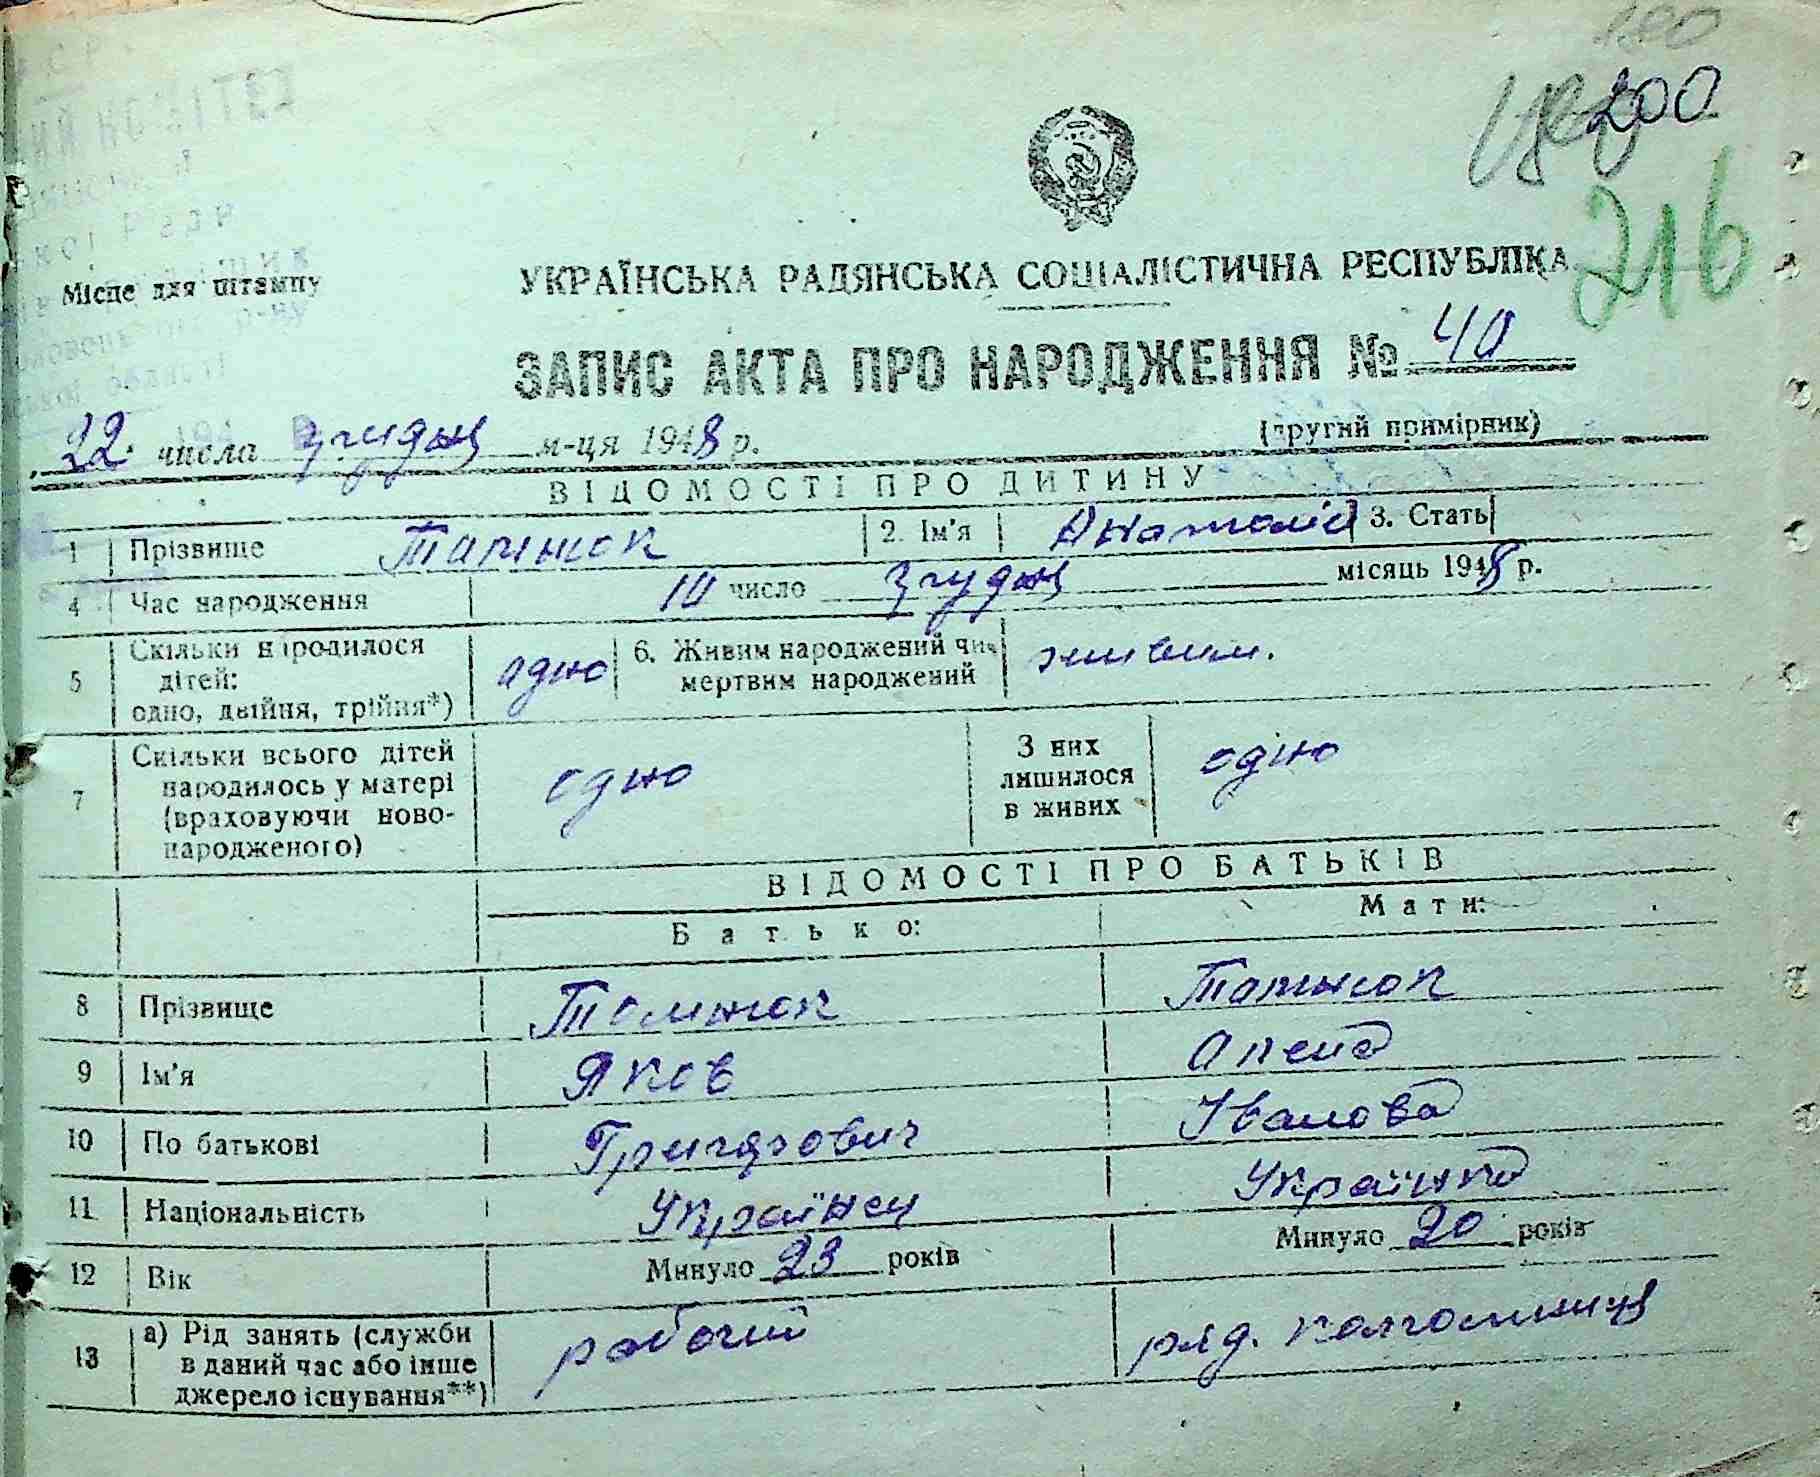 200
216
Місце для штампу
УКРАЇНСЬКА РАДЯНСЬКА СОЦІАЛІСТИЧНА РЕСПУБЛІКА
ЗАПИС АКТА ПРО НАРОДЖЕННЯ № 40
(другий примірник)
22 числа грудня м-ця 1948 р.
ВІДОМОСТІ ПРО ДИТИНУ
1 Прізвище 2. Ім'я Анатолій 3. Стать
4 Час народження 10 число грудня місяць 1948 р.
5 Скільки народилося
дітей:
одно, двійня, трійня*) одно 6. Живим народжений чи
мертвим народжений живим.
7 Скільки всього дітей
народилось у матері
(враховуючи ново-
народженого) одно З них
лишилося
в живих одно
ВІДОМОСТІ ПРО БАТЬКІВ
Батько: Мати:
8 Прізвище
9 Ім'я Яков
10 По батькові Григорович Івановa
11 Національність Українец Українка
12 Вік Минуло 23 років Минуло 20 років
13 а) Рід занять (служби
в даний час або інше
джерело існування**) робочий ряд. колгоспниця